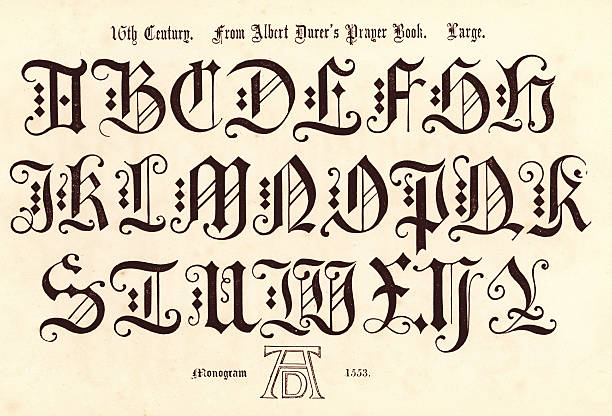 16th Century. From Albert Durer's Prayer Book. Large.
A B C D E F G H
I K L M N O P Q R
S T U W X Y Z
Monogram AD 1553.